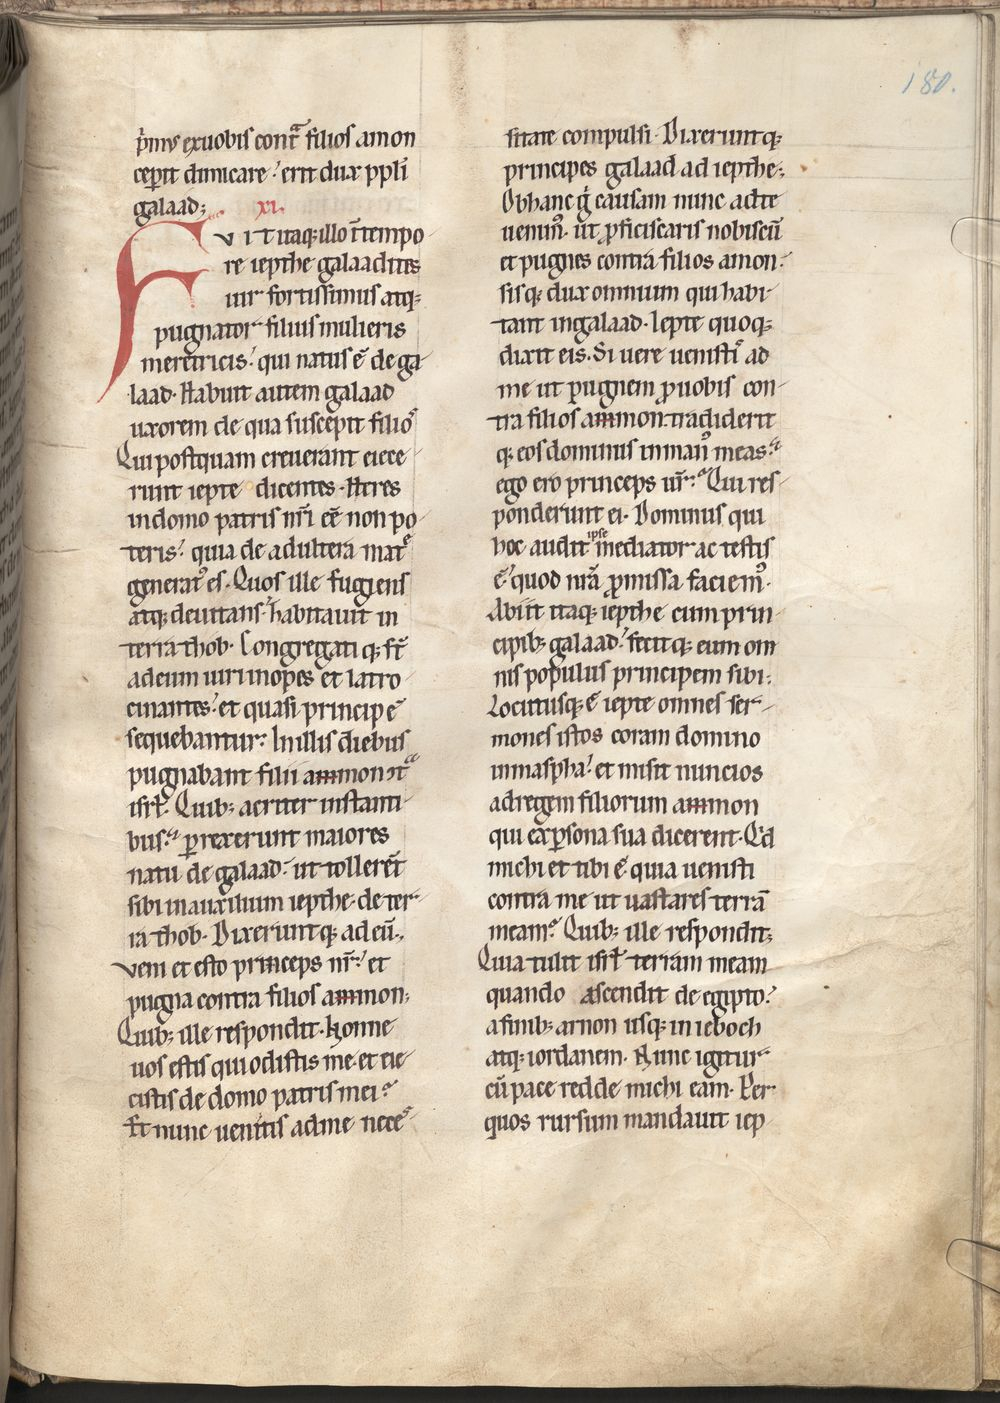 180.
p̍mus exuobis cont̾ filios amon
ceperit dimicare erit dux ppl̍i
galaad; xi.
FVIT itaq; illo ı̄tempo
re iepthe galaadites
uir fortissimus atq;
pugnator filius mulieris
meretricis. qui natus ē de ga
laad. Habuit autem galaad
uxorem de qua suscepit filioˢ
Qui postquam creuerant eiece
runt iepte dicentes. Heres
indomo patris nr̄i eē non po
teris. quia de adultera matͤ
generatꝰ es. Quos ille fugiens
atq; deuitans. habitauit in
terra thob. Congregati q; st̄
adeum uiri inopes et latro
cinantes. et quasi principē
sequebantur. Inillis diebus
pugnabant filii ammon ↄtᵃ
isrl̄. Quib; acriter instanti
bus. ꝑrexerunt maiores
natu de galaad. ut tollerēt
sibi inauxilium iepthe. de ter
ra thob. Dixerunt q; ad eū.
veni et esto princeps nr̄. et
pugna contra filios ammon;
Quib; ille respondit. Nonne
uos estis qui odistis me. et eie
cistis de domo patris mei.
Et nunc uenitis adme nece
sitate compulsi. Dixerunt q;
principes galaad ad iepthe;
Obhanc g̍ causam nunc adte
uenimꝰ. ut ꝓficiscaris nobiscū
et pugnes contra filios amon.
sis q; dux omnium qui habi
tant ingalaad. Iepte quoq;
dixit eis. Si uere uenistiˢ ad
me ut pugnem ꝓ uobis con
tra filios ammon. tradiderit
q; eos dominus inmanꝰ meas.
ego ero princeps ur̄. Qui res
ponderunt ei. Dominus qui
hoc audit ipse mediator ac testis
ē. quod nr̄a ꝓmissa faciemꝰ.
Abiit itaq; iepthe cum prin
cipib; galaad. fecit q; eum om
nis populus principem sibi.
Locutusq; ē iepte omnes ser
mones istos coram domino
inmaspha. et misit nuncios
adregem filiorum ammon
qui exꝑsona sua dicerent. Qd
michi et tibi ē. quia uenisti
contra me ut uastares terrā
meam. Quib; ille respondit;
Quia tulit isrl̄ terram meam
quando ascendit de egipto.
afinib; arnon usq; in ieboch
atq; iordanem. Nunc igitur
cū pace redde michi eam. Per
quos rursum mandauit iep